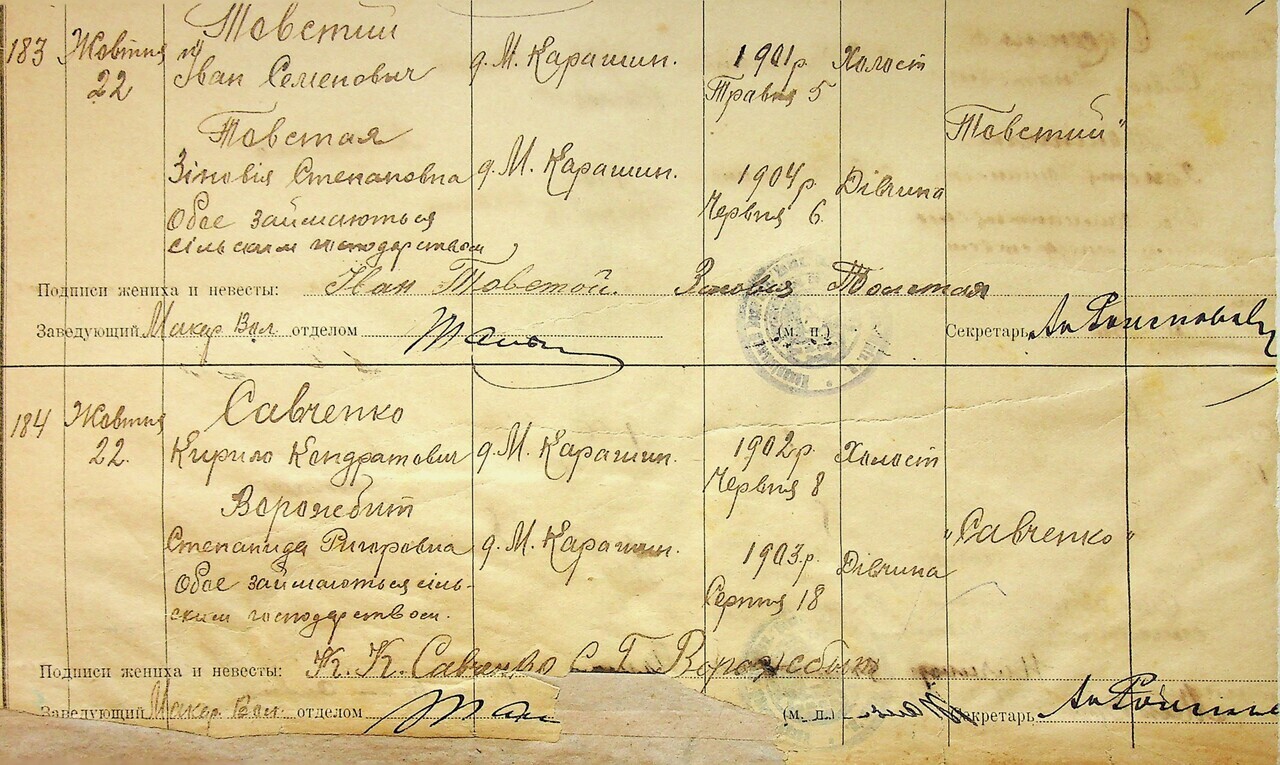 183 Жовтня 22 Товстий
Іван Семенович д. М. Карашин. 1901 р. Травня 5 Холост
Товстая "Товстий"
Зіновія Степановна д. М. Карашин. 1904 р. Червня 6 Дівчина
Обоє займаються
сільским господарством
Подписи жениха и невесты: Іван Товстой. Зіновія Толстая
Заведующий Макар. Вол. отделом (м. п.) Секретарь
184 Жовтня 22. Савченко
Кирило Кондратович д. М. Карашин. 1902 р. Червня 8 Холост
Ворожбит "Савченко"
Степанида Ригоровна д. М. Карашин. 1903 р. Серпня 18 Дівчина
Обоє займаються сіль-
ским господарством.
Подписи жениха и невесты: К. К. Савченко С. Г. Ворожебыт
Заведующий Макар. Вол. отделом (м. п.) Секретарь